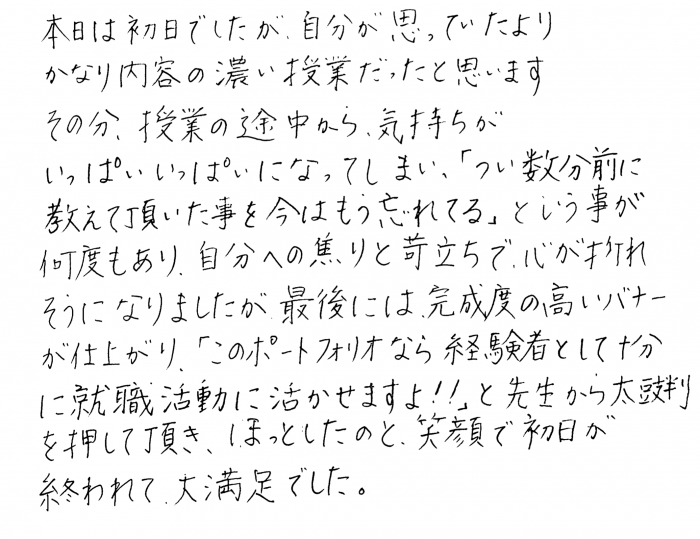 本日は初日でしたが、自分が思っていたより
かなり内容の濃い授業だったと思います
その分、授業の途中から、気持ちが
いっぱいいっぱいになってしまい、「つい数分前に
教えて頂いた事を今はもう忘れてる」という事が
何度もあり、自分への焦りと苛立ちで、心が折れ
そうになりましたが、最後には、完成度の高いバナー
が仕上がり、「このポートフォリオなら経験者として十分
に就職活動に活かせますよ!!」と先生から太鼓判
を押して頂き、ほっとしたのと、笑顔で初日が
終われて、大満足でした。